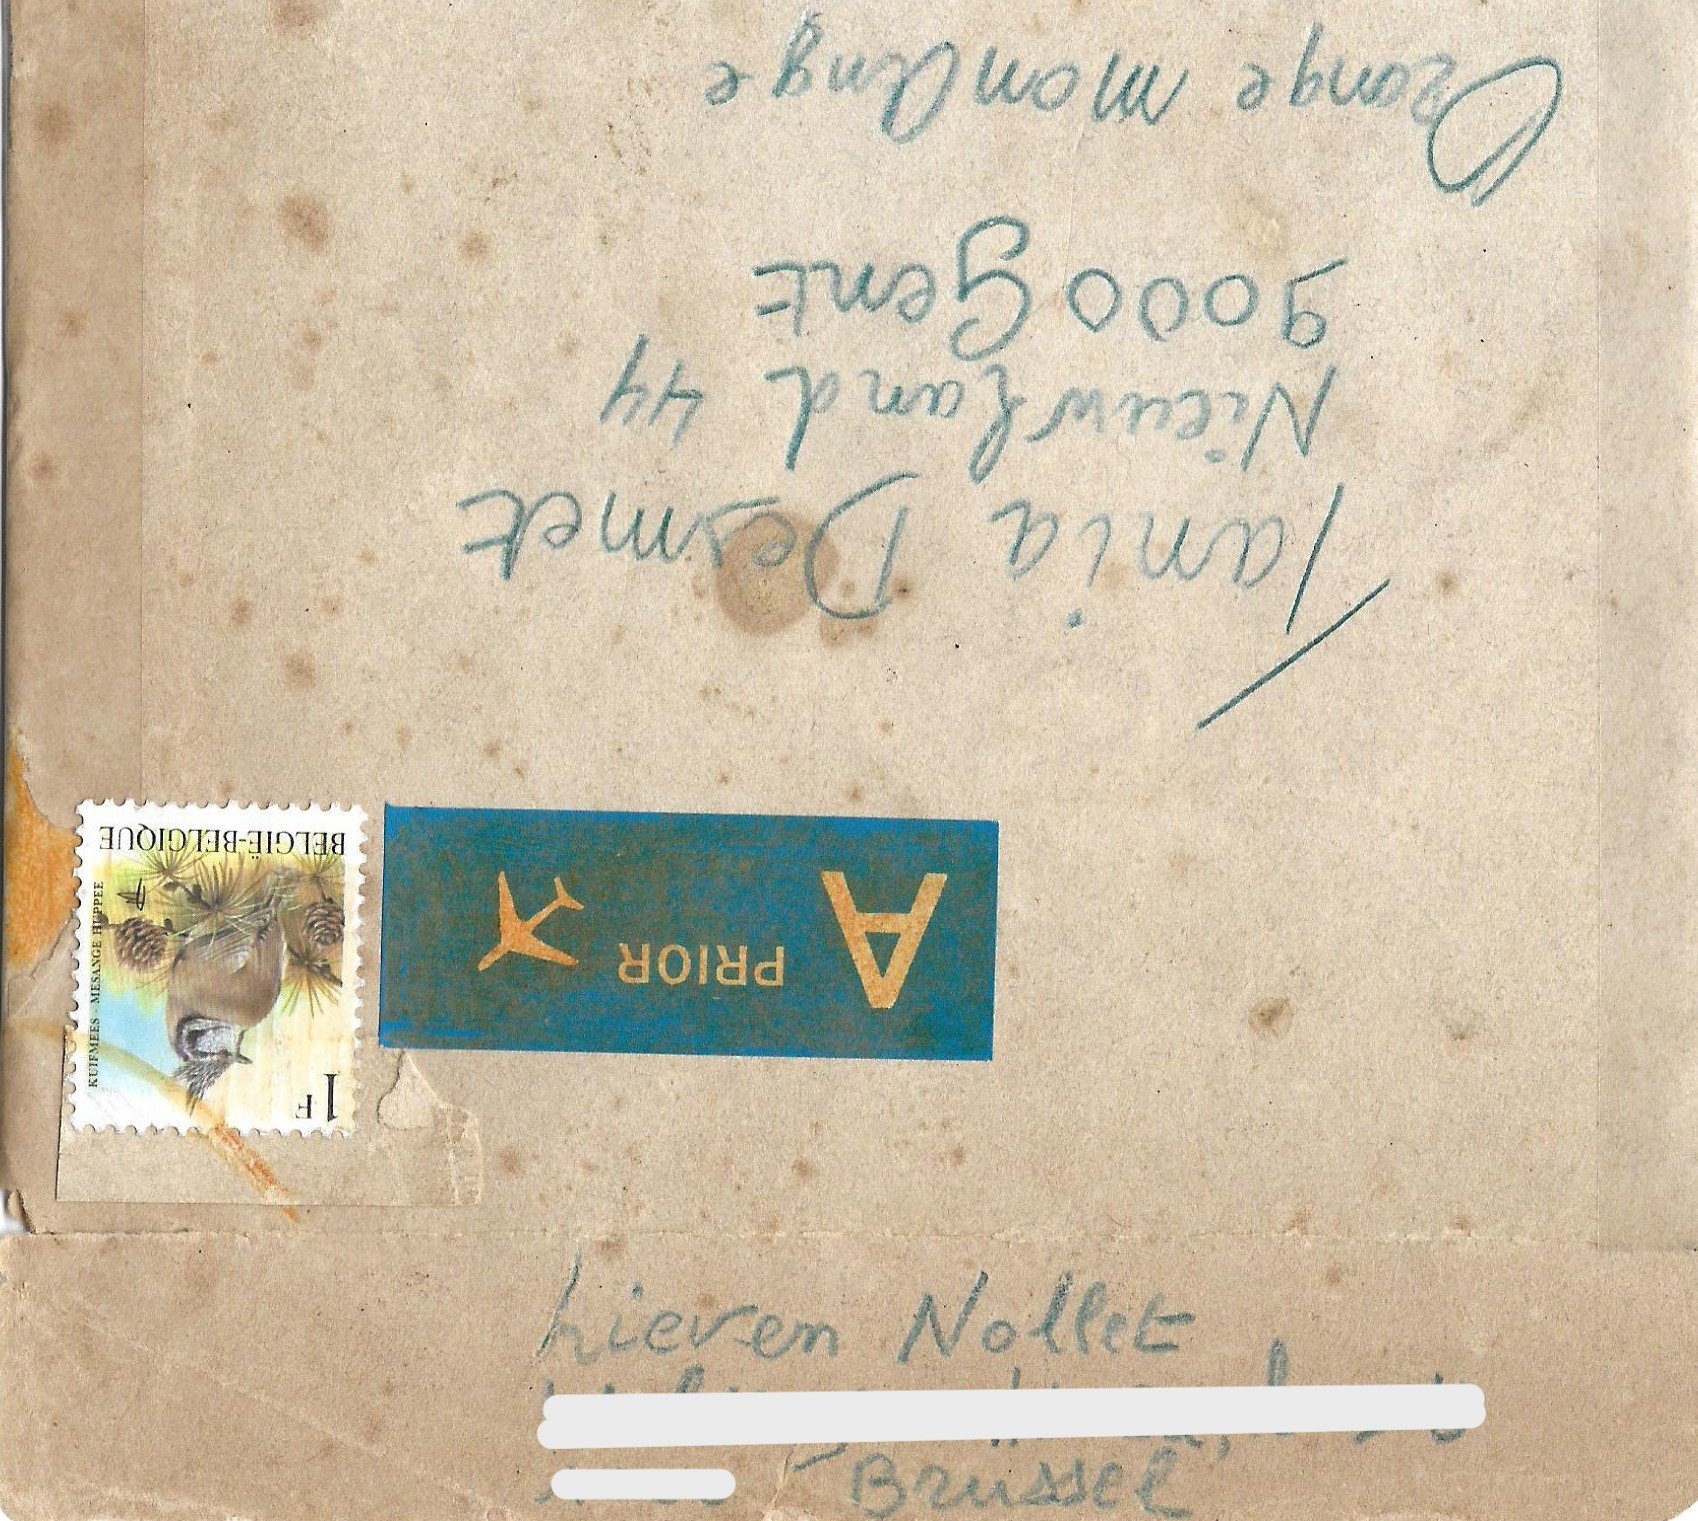 Lieven Nollet
Brussel
1F
KUIFMEES - MESANGE HUPPEE
BELGIË-BELGIQUE
A PRIOR
Tania Desmet
Nieuwland 44
9000 Gent
Orange mon Ange